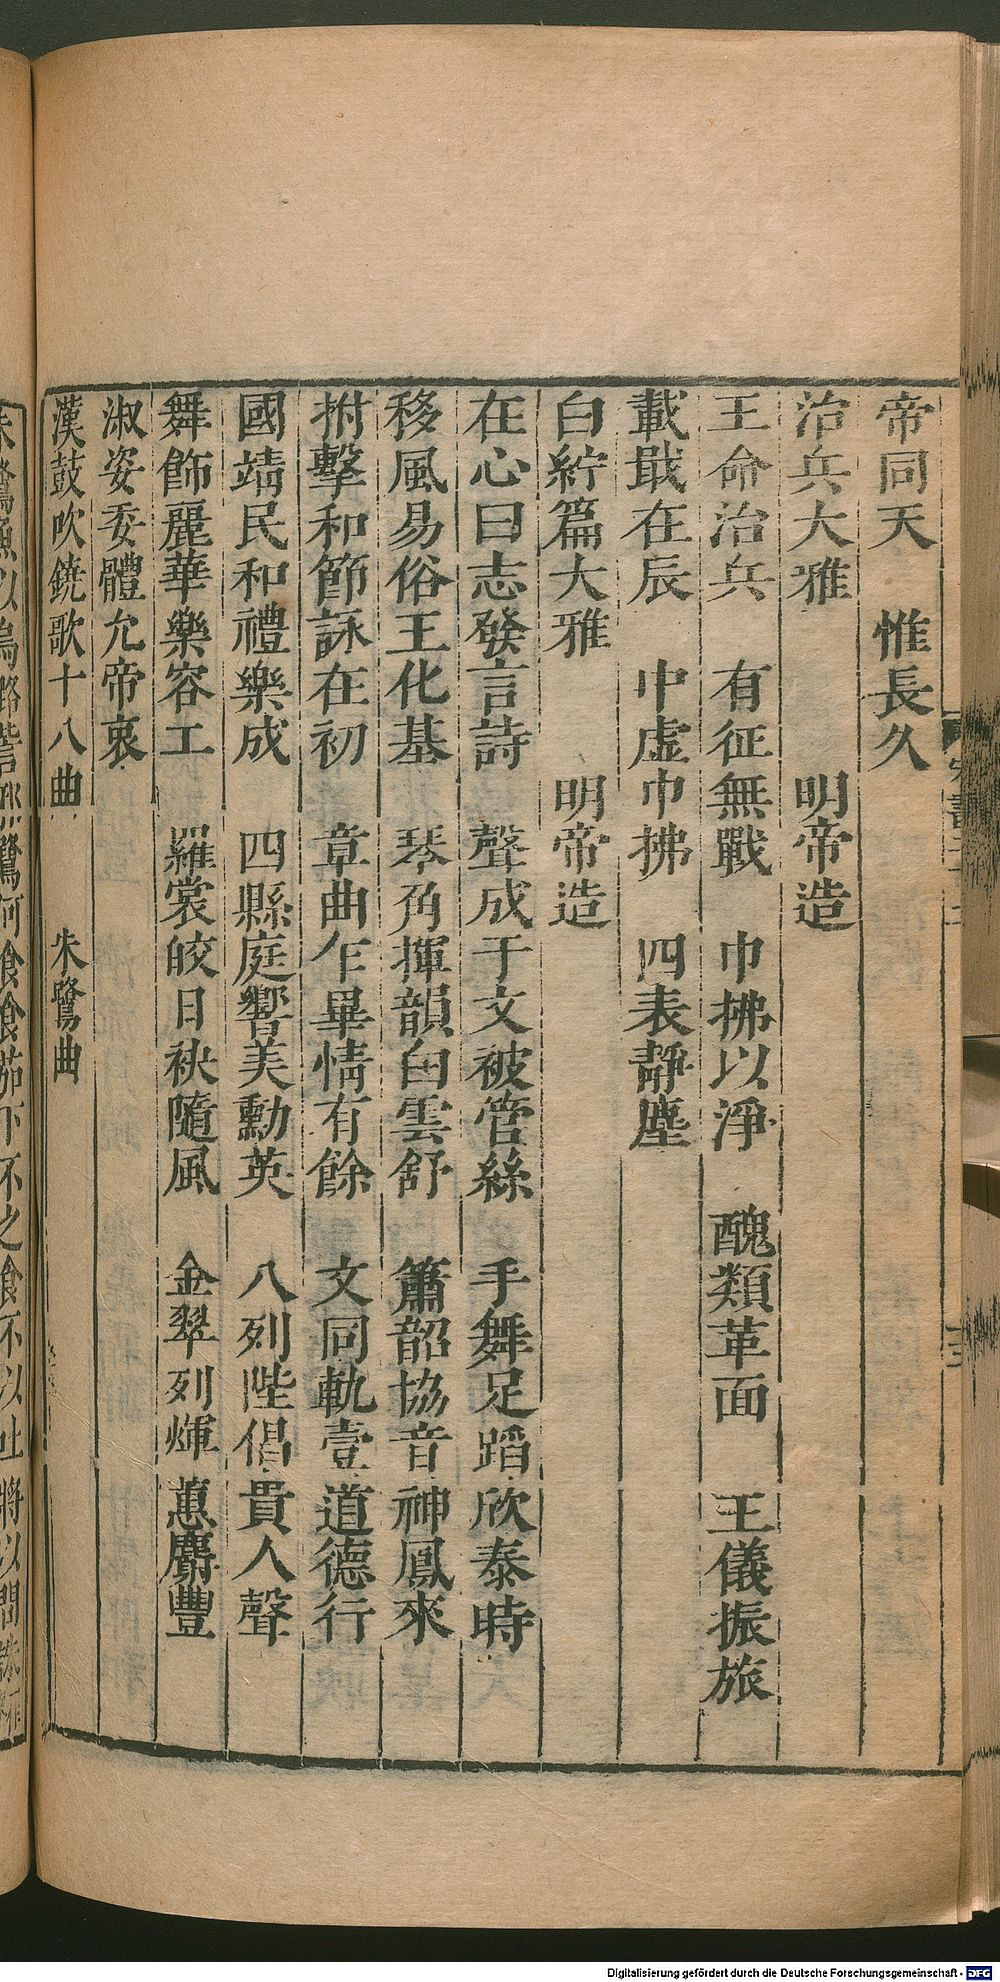 帝同天　惟長久
治兵大雅　　　明帝造
王命治兵　有征無戰　巾拂以淨　醜類革面　王儀振旅
載戢在辰　中虛巾拂　四表靜塵
白紵篇大雅　　明帝造
在心曰志發言詩　聲成于文被管絲　手舞足蹈欣泰時
移風易俗王化基　琴角揮韻白雲舒　簫韶協音神鳳來
拊擊和節詠在初　章曲乍畢情有餘　文同軌壹道德行
國靖民和禮樂成　四縣庭響美勳英　八列陛倡貴人聲
舞飾麗華樂容工　羅裳皎日袂隨風　金翠列煇蕙麝豐
淑姿委體允帝衷
漢鼓吹鐃歌十八曲　　朱鷺曲
朱鷺魚以烏路訾邪鷺何食食茄下不之食不以吐將以問誅
Digitalisierung gefördert durch die Deutsche Forschungsgemeinschaft - DFG